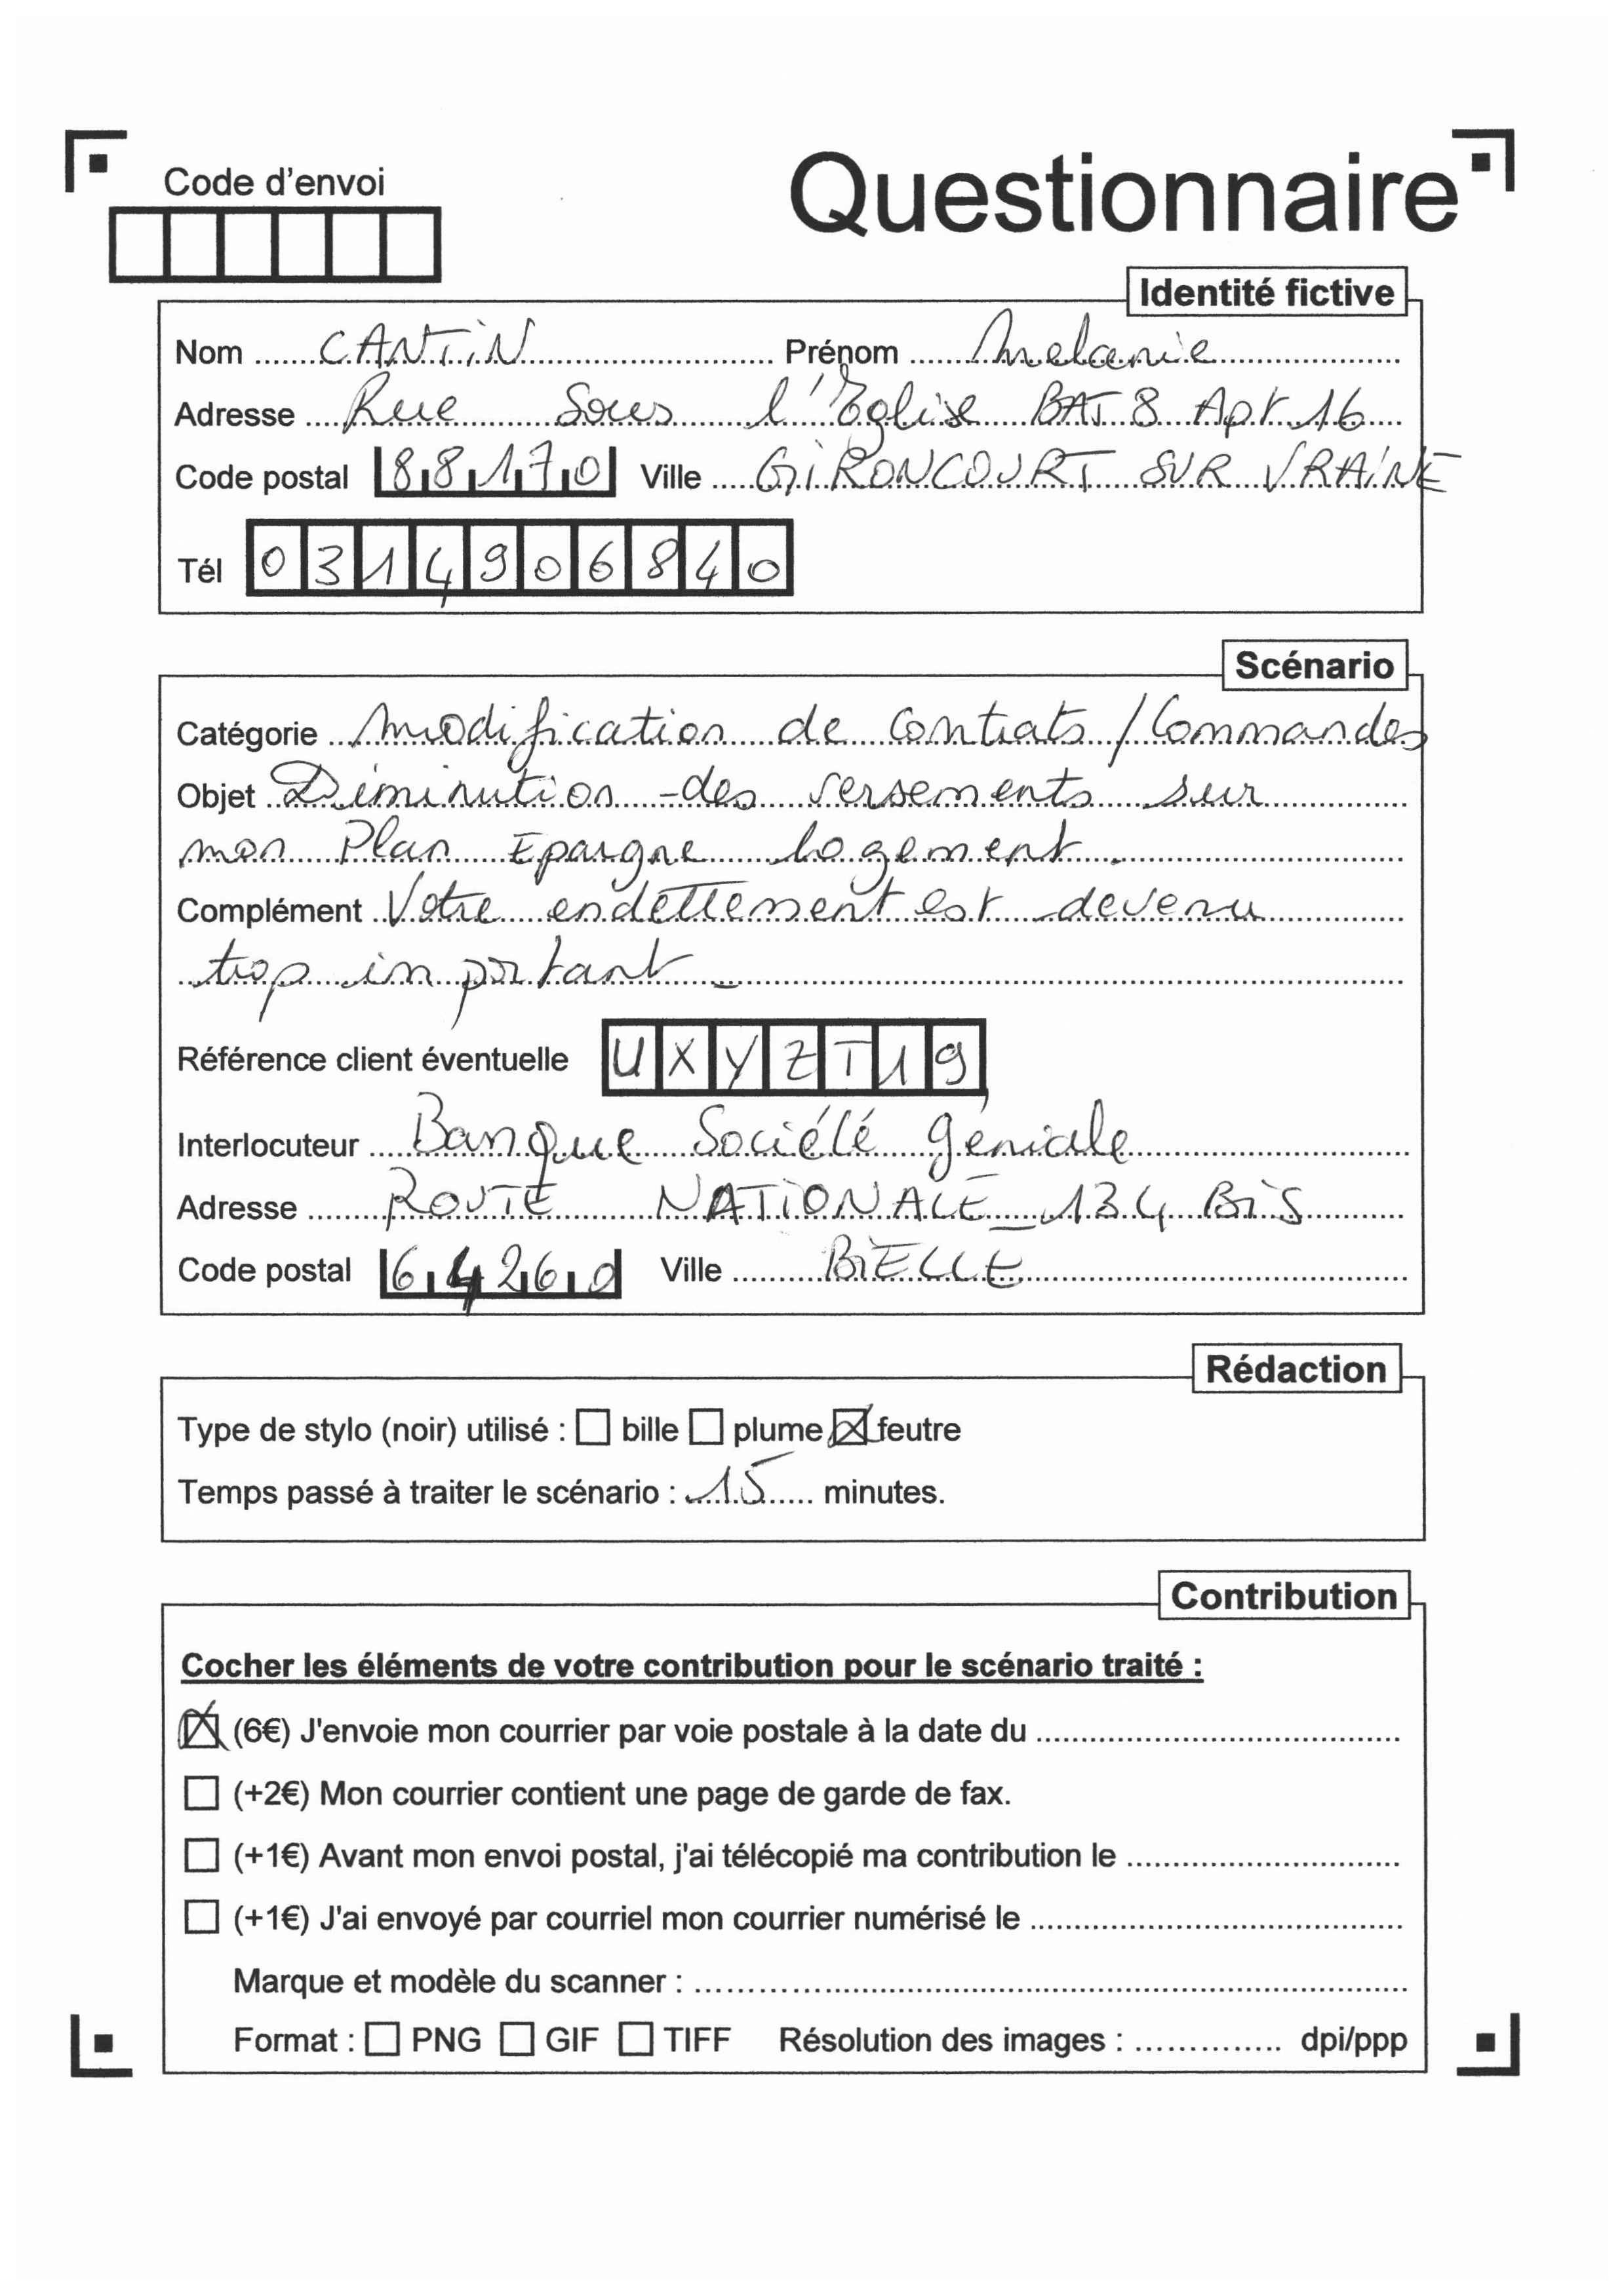 Code d'envoi
Questionnaire
Identité fictive
Nom CANTIN Prénom Melanie
Adresse Rue Sous l'Eglise BAT 8 Apt 16
Code postal 88170 Ville GIRONCOURT SUR VRAINE
Tél 0314906840
Scénario
Catégorie modification de contrats / Commandes
Objet Diminution des versements sur
mon Plan Epargne Logement.
Complément Votre endettement est devenu
trop important
Référence client éventuelle UXYZT19
Interlocuteur Banque Société géniale
Adresse ROUTE NATIONALE_134 Bis
Code postal 64260 Ville BIELLE
Rédaction
Type de stylo (noir) utilisé : bille plume feutre
Temps passé à traiter le scénario : 15 minutes.
Contribution
Cocher les éléments de votre contribution pour le scénario traité :
(6€) J'envoie mon courrier par voie postale à la date du
(+2€) Mon courrier contient une page de garde de fax.
(+1€) Avant mon envoi postal, j'ai télécopié ma contribution le
(+1€) J'ai envoyé par courriel mon courrier numérisé le
Marque et modèle du scanner :
Format : PNG GIF TIFF Résolution des images : dpi/ppp